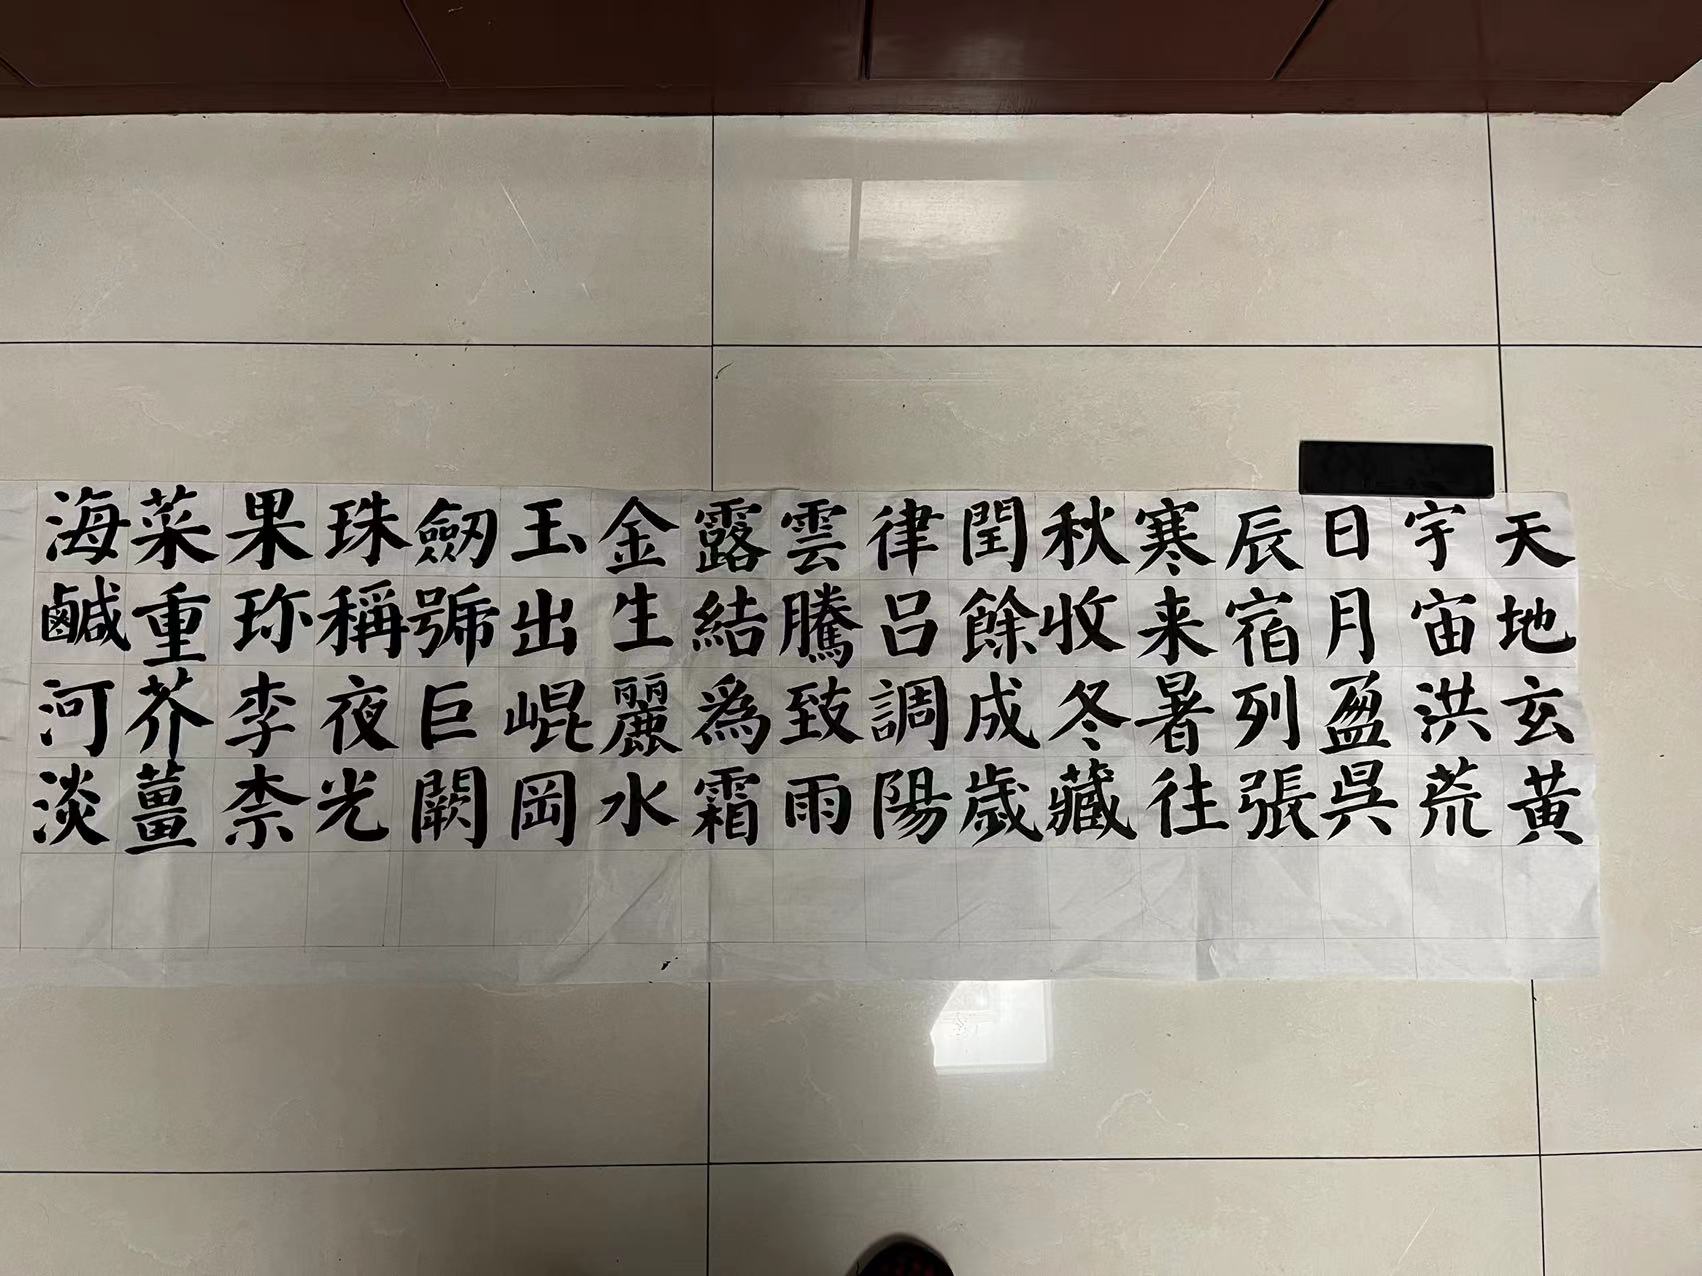 天地玄黄
宇宙洪荒
日月盈昃
辰宿列張
寒来暑往
秋收冬藏
閏餘成歲
律吕調陽
雲騰致雨
露結為霜
金生麗水
玉出崐岡
劔號巨闕
珠稱夜光
果珎李柰
菜重芥薑
海鹹河淡